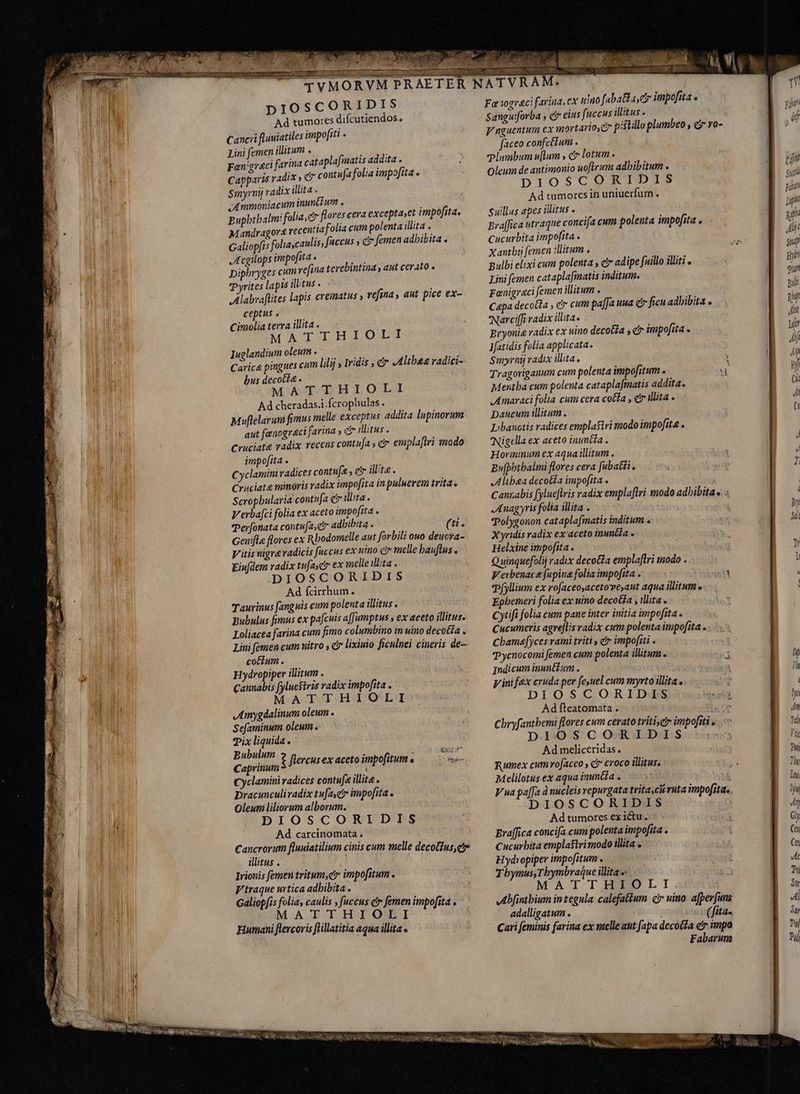 TVMORVM PRAETER NATVRAM.
DIOSCORIDIS
Ad tumores discutiendos.
Cancri fluuiatiles impositi.
Lini semen illitum.
Fœnigræci farina cataplasmatis addita.
Capparis radix, & contusa folia imposita.
Smyrnij radix illita.
Ammoniacum inunctum.
Buphthalmi folia, & flores cera excepta, et imposita.
Mandragoræ recentia folia cum polenta illita.
Galiopsis folia, caulis, succus, & semen adhibita.
Aegilops imposita.
Diphryges cum resina terebintina, aut cerato.
Pyrites lapis illitus.
Alabrastites lapis crematus, resina, aut pice ex-
ceptus.
Cimolia terra illita.
MATTHIOLI
Iuglandium oleum.
Caricæ pingues cum lilij, Iridis, & Altheæ radici-
bus decoctæ.
MATTHIOLI
Ad cheradas.i.scrophulas.
Mustelarum fimus melle exceptus addita lupinorum
aut fœnogræci farina, & illitus.
Cruciatæ radix recens contusa, & emplastri modo
imposita.
Cyclamini radices contusæ, & illitæ.
Cruciatæ minoris radix imposita in puluerem trita.
Scrophularia contusa & illita.
Verbasci folia ex aceto imposita.
Personata contusa, & adhibita. (ti.
Genistæ flores ex Rhodomelle aut sorbili ouo deuora-
Vitis nigræ radicis succus ex uino & melle haustus.
Eiusdem radix tusa, & ex melle illita.
DIOSCORIDIS
Ad scirrhum.
Taurinus sanguis cum polenta illitus.
Bubulus fimus ex pascuis assumptus, ex aceto illitus.
Loliacea farina cum fimo columbino in uino decocta.
Lini semen cum nitro, & lixiuio ficulnei cineris de-
coctum.
Hydropiper illitum.
Cannabis syluestris radix imposita.
MATTHIOLI
Amygdalinum oleum.
Sesaminum oleum.
Pix liquida.
Bubulum
Caprinum } stercus ex aceto impositum.
Cyclamini radices contusæ illitæ.
Dracunculi radix tusa, & imposita.
Oleum liliorum alborum.
DIOSCORIDIS
Ad carcinomata.
Cancrorum fluuiatilium cinis cum melle decoctus, &
illitus.
Irionis semen tritum, & impositum.
Vtraque urtica adhibita.
Galiopsis folia, caulis, succus & semen imposita.
MATTHIOLI
Humani stercoris stillatitia aqua illita.
Fœnogræci farina, ex uino subacta, & imposita.
Sanguisorba, & eius succus illitus.
Vnguentum ex mortario, & pistillo plumbeo, & ro-
saceo confectum.
Plumbum ustum, & lotum.
Oleum de antimonio nostrum adhibitum.
DIOSCORIDIS
Ad tumores in uniuersum.
Suillus apes illitus.
Brassica utraque concisa cum polenta imposita.
Cucurbita imposita.
Xanthij semen illitum.
Bulbi elixi cum polenta, & adipe suillo illiti.
Lini semen cataplasmatis inditum.
Fœnigræci semen illitum.
Cæpa decocta, & cum passa uua & ficu adhibita.
Narcissi radix illita.
Bryoniæ radix ex uino decocta, & imposita.
Isatidis folia applicata.
Smyrnij radix illita.
Tragoriganum cum polenta impositum.
Mentha cum polenta cataplasmatis addita.
Amaraci folia cum cera cocta, & illita.
Daucum illitum.
Libanotis radices emplastri modo impositæ.
Nigella ex aceto inuncta.
Horminum ex aqua illitum.
Buphthalmi flores cera subacti.
Althea decocta imposita.
Cannabis syluestris radix emplastri modo adhibita.
Anagyris folia illita.
Polygonon cataplasmatis inditum.
Xyridis radix ex aceto inuncta.
Helxine imposita.
Quinquefolij radix decocta emplastri modo.
Verbenacæ supinæ folia imposita.
Psyllium ex rosaceo, aceto ve, aut aqua illitum.
Ephemeri folia ex uino decocta, illita.
Cytisi folia cum pane inter initia imposita.
Cucumeris agrestis radix cum polenta imposita.
Chamæsyces rami triti, & impositi.
Pycnocomi semen cum polenta illitum.
Indicum inunctum.
Vini fæx cruda per se, uel cum myrto illita.
DIOSCORIDIS
Ad steatomata.
Chrysanthemi flores cum cerato triti, & impositi.
DIOSCORIDIS
Ad meliceridas.
Rumex cum rosaceo, & croco illitus.
Melilotus ex aqua inuncta.
Vua passa à nucleis repurgata trita, cũ ruta imposita.
DIOSCORIDIS
Ad tumores ex ictu.
Brassica concisa cum polenta imposita.
Cucurbita emplastri modo illita.
Hydropiper impositum.
Thymus, Thymbraque illita.
MATTHIOLI.
Absinthium in tegula calefactum & uino aspersum
adalligatum. (sita.
Cari seminis farina ex melle aut sapa decocta & impo
Fabarum